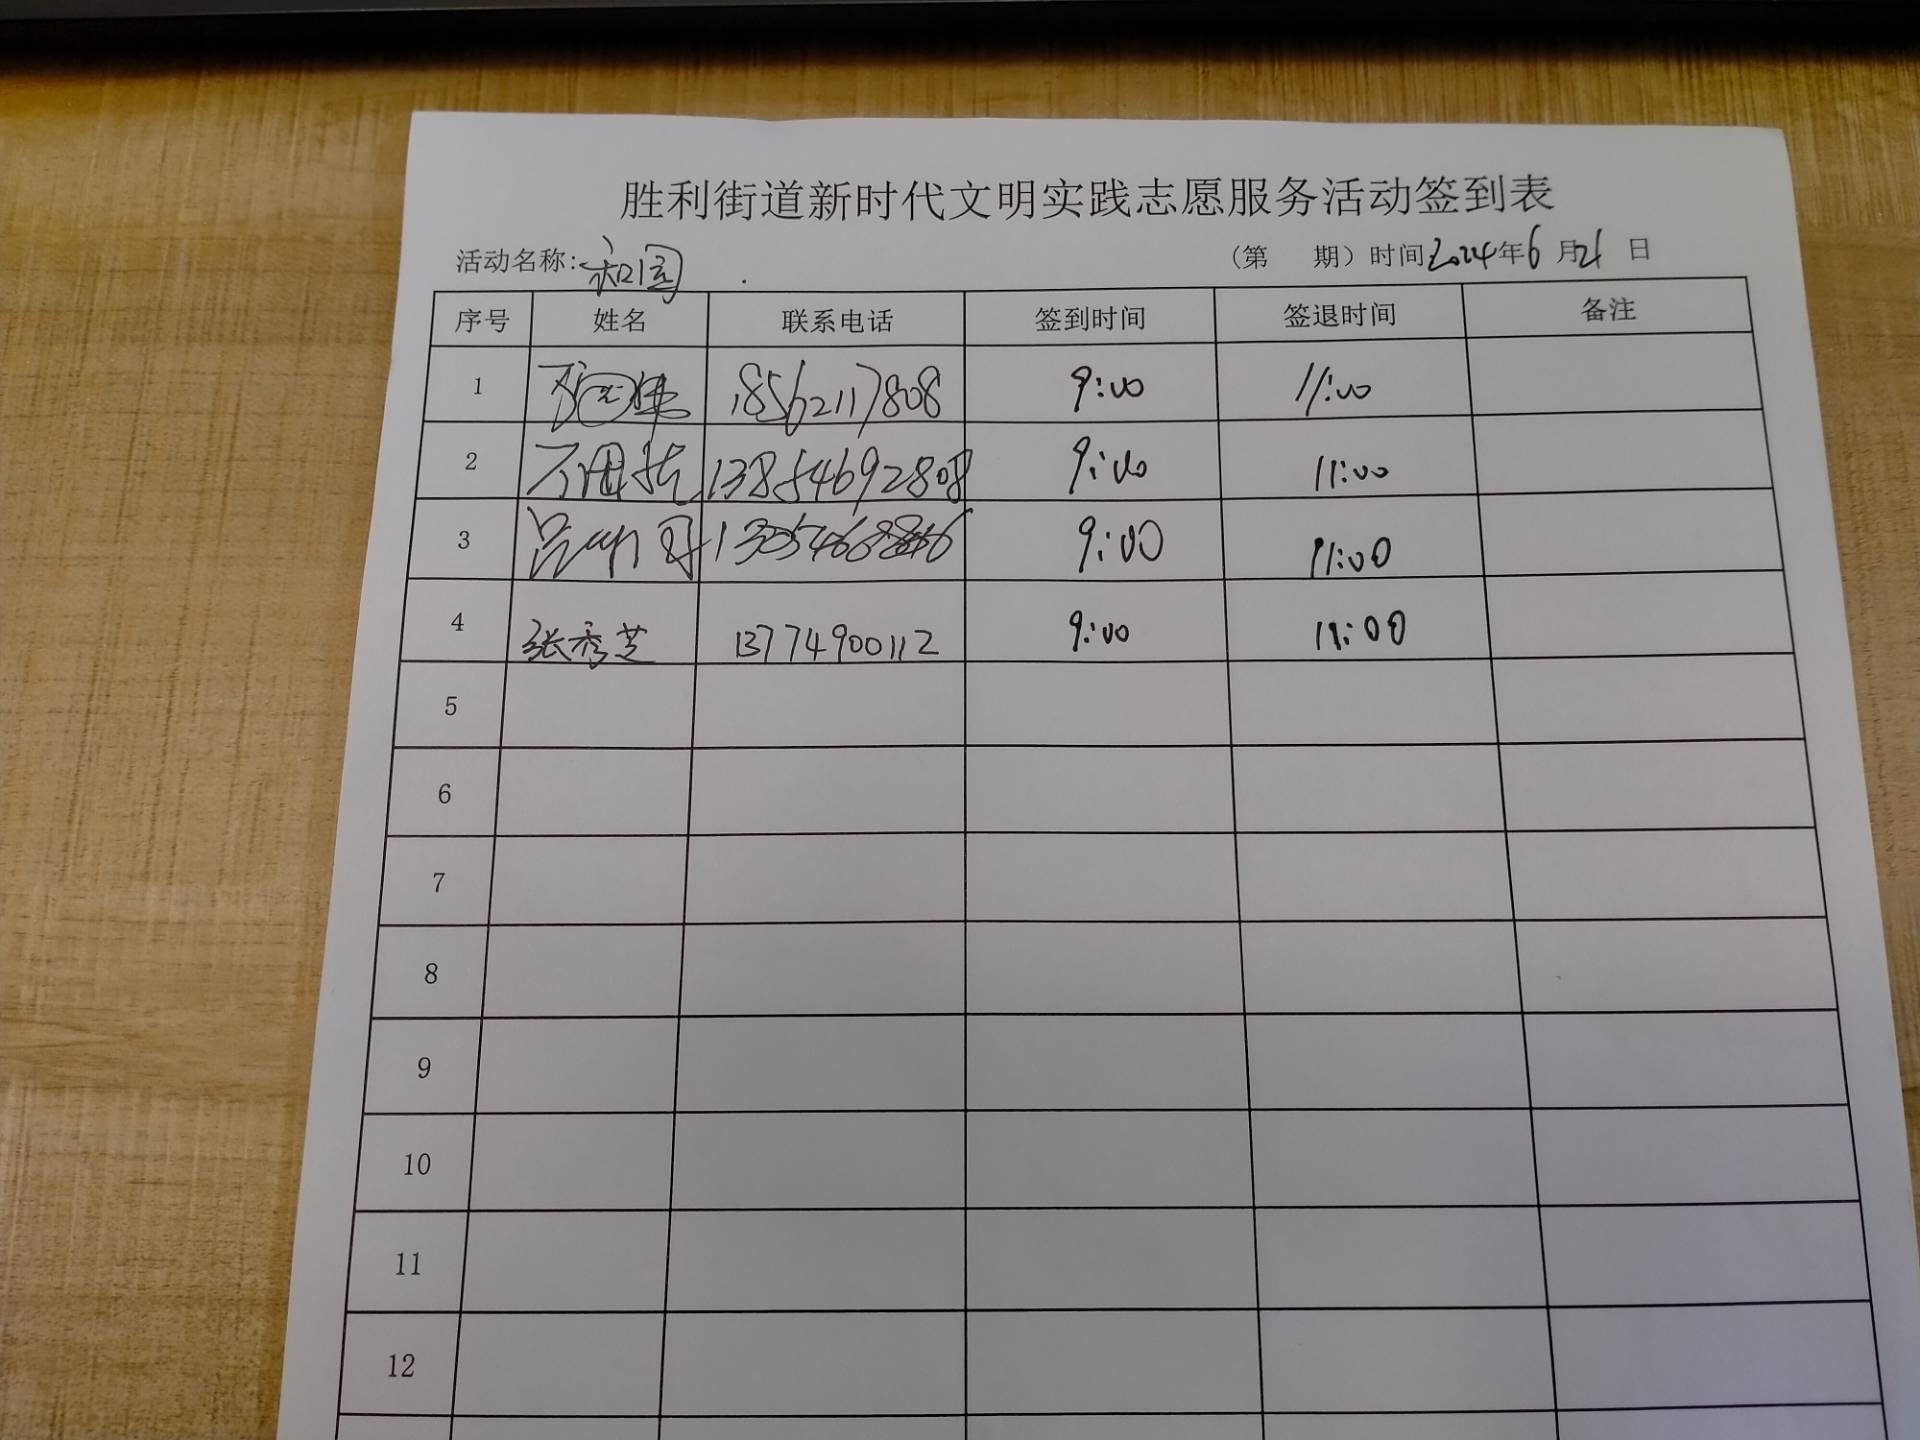 胜利街道新时代文明实践志愿服务活动签到表
活动名称: （第 期）时间2024年6月21日
序号 姓名 联系电话 签到时间 签退时间 备注
1 18562117808 9:00 11:00
2 13854692808 9:00 11:00
3 9:00 11:00
4 张秀芝 13774900112 9:00 11:00
5
6
7
8
9
10
11
12